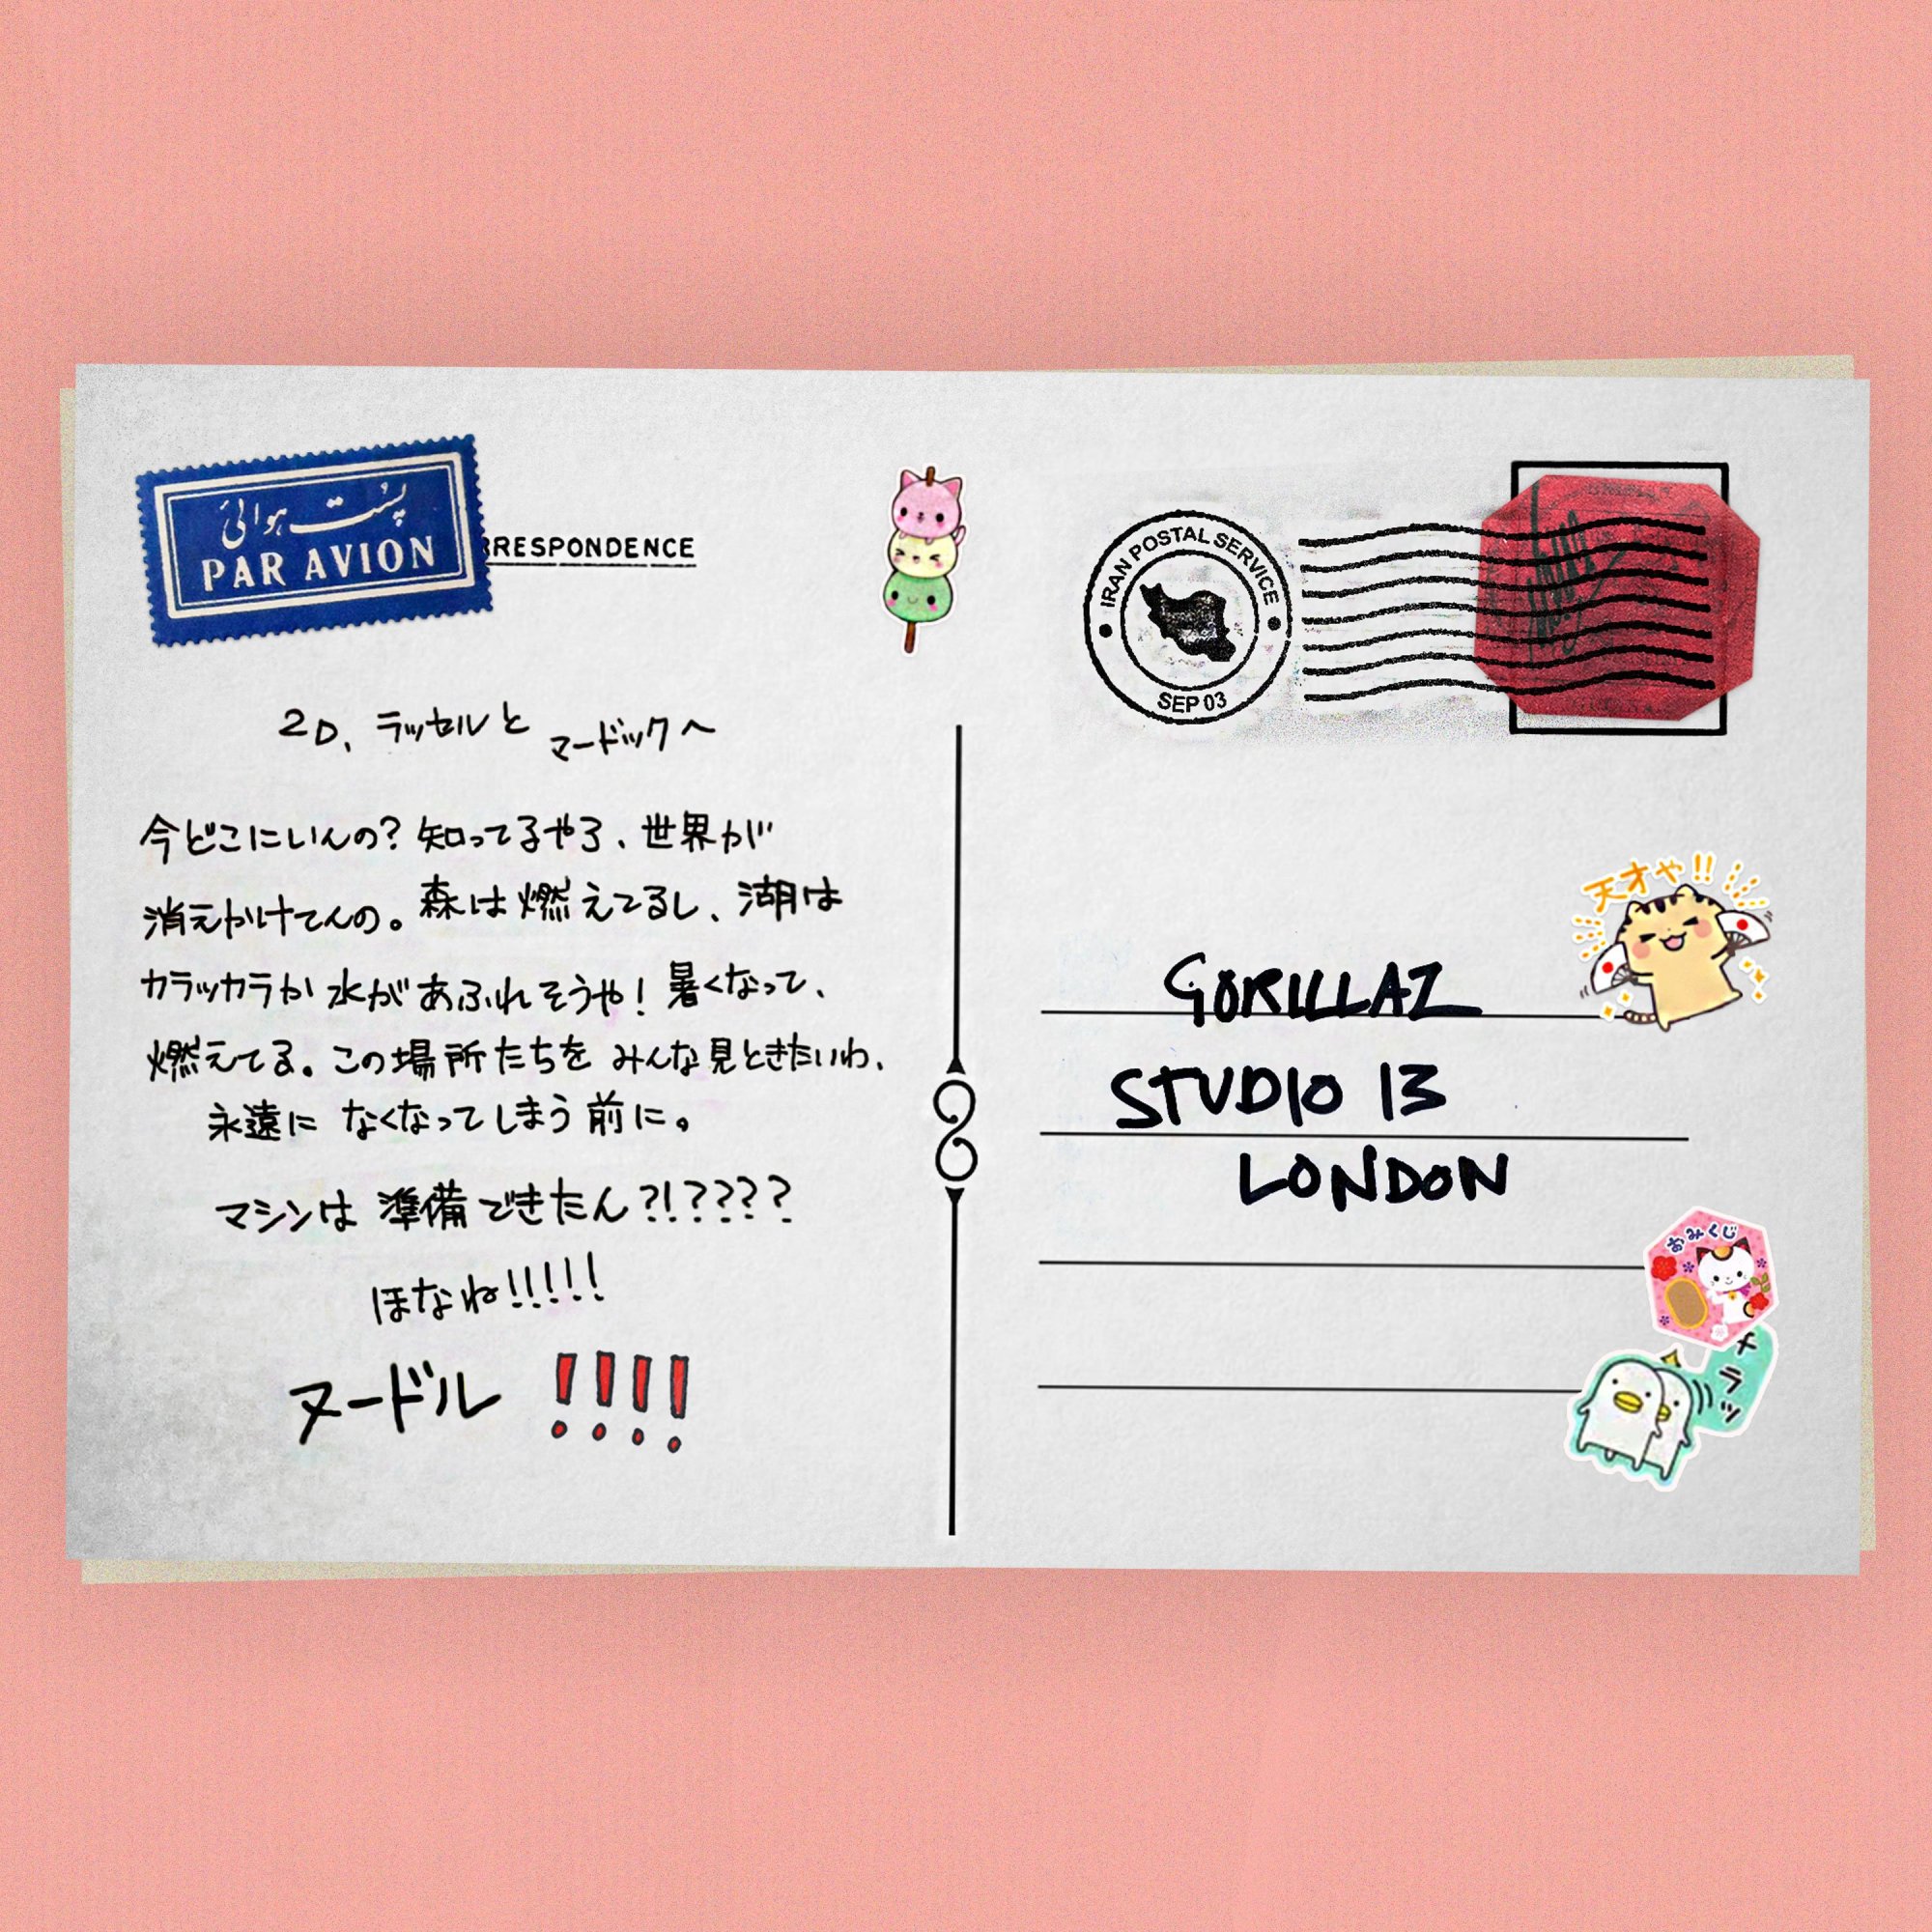 پست هوائی
PAR AVION
RRESPONDENCE
2D、ラッセルと マードックへ
今どこにいんの？知ってるやろ、世界が
消えかけてんの。森は燃えてるし、湖は
カラッカラか水があふれそうや！暑くなって、
燃えてる。この場所たちをみんな見ときたいわ、
永遠になくなってしまう前に。
マシンは準備できたん？！？？？？
ほなね！！！！！
ヌードル！！！！
IRAN POSTAL SERVICE
SEP 03
GORILLAZ
STUDIO 13
LONDON
天才や！！
おみくじ
チラッ